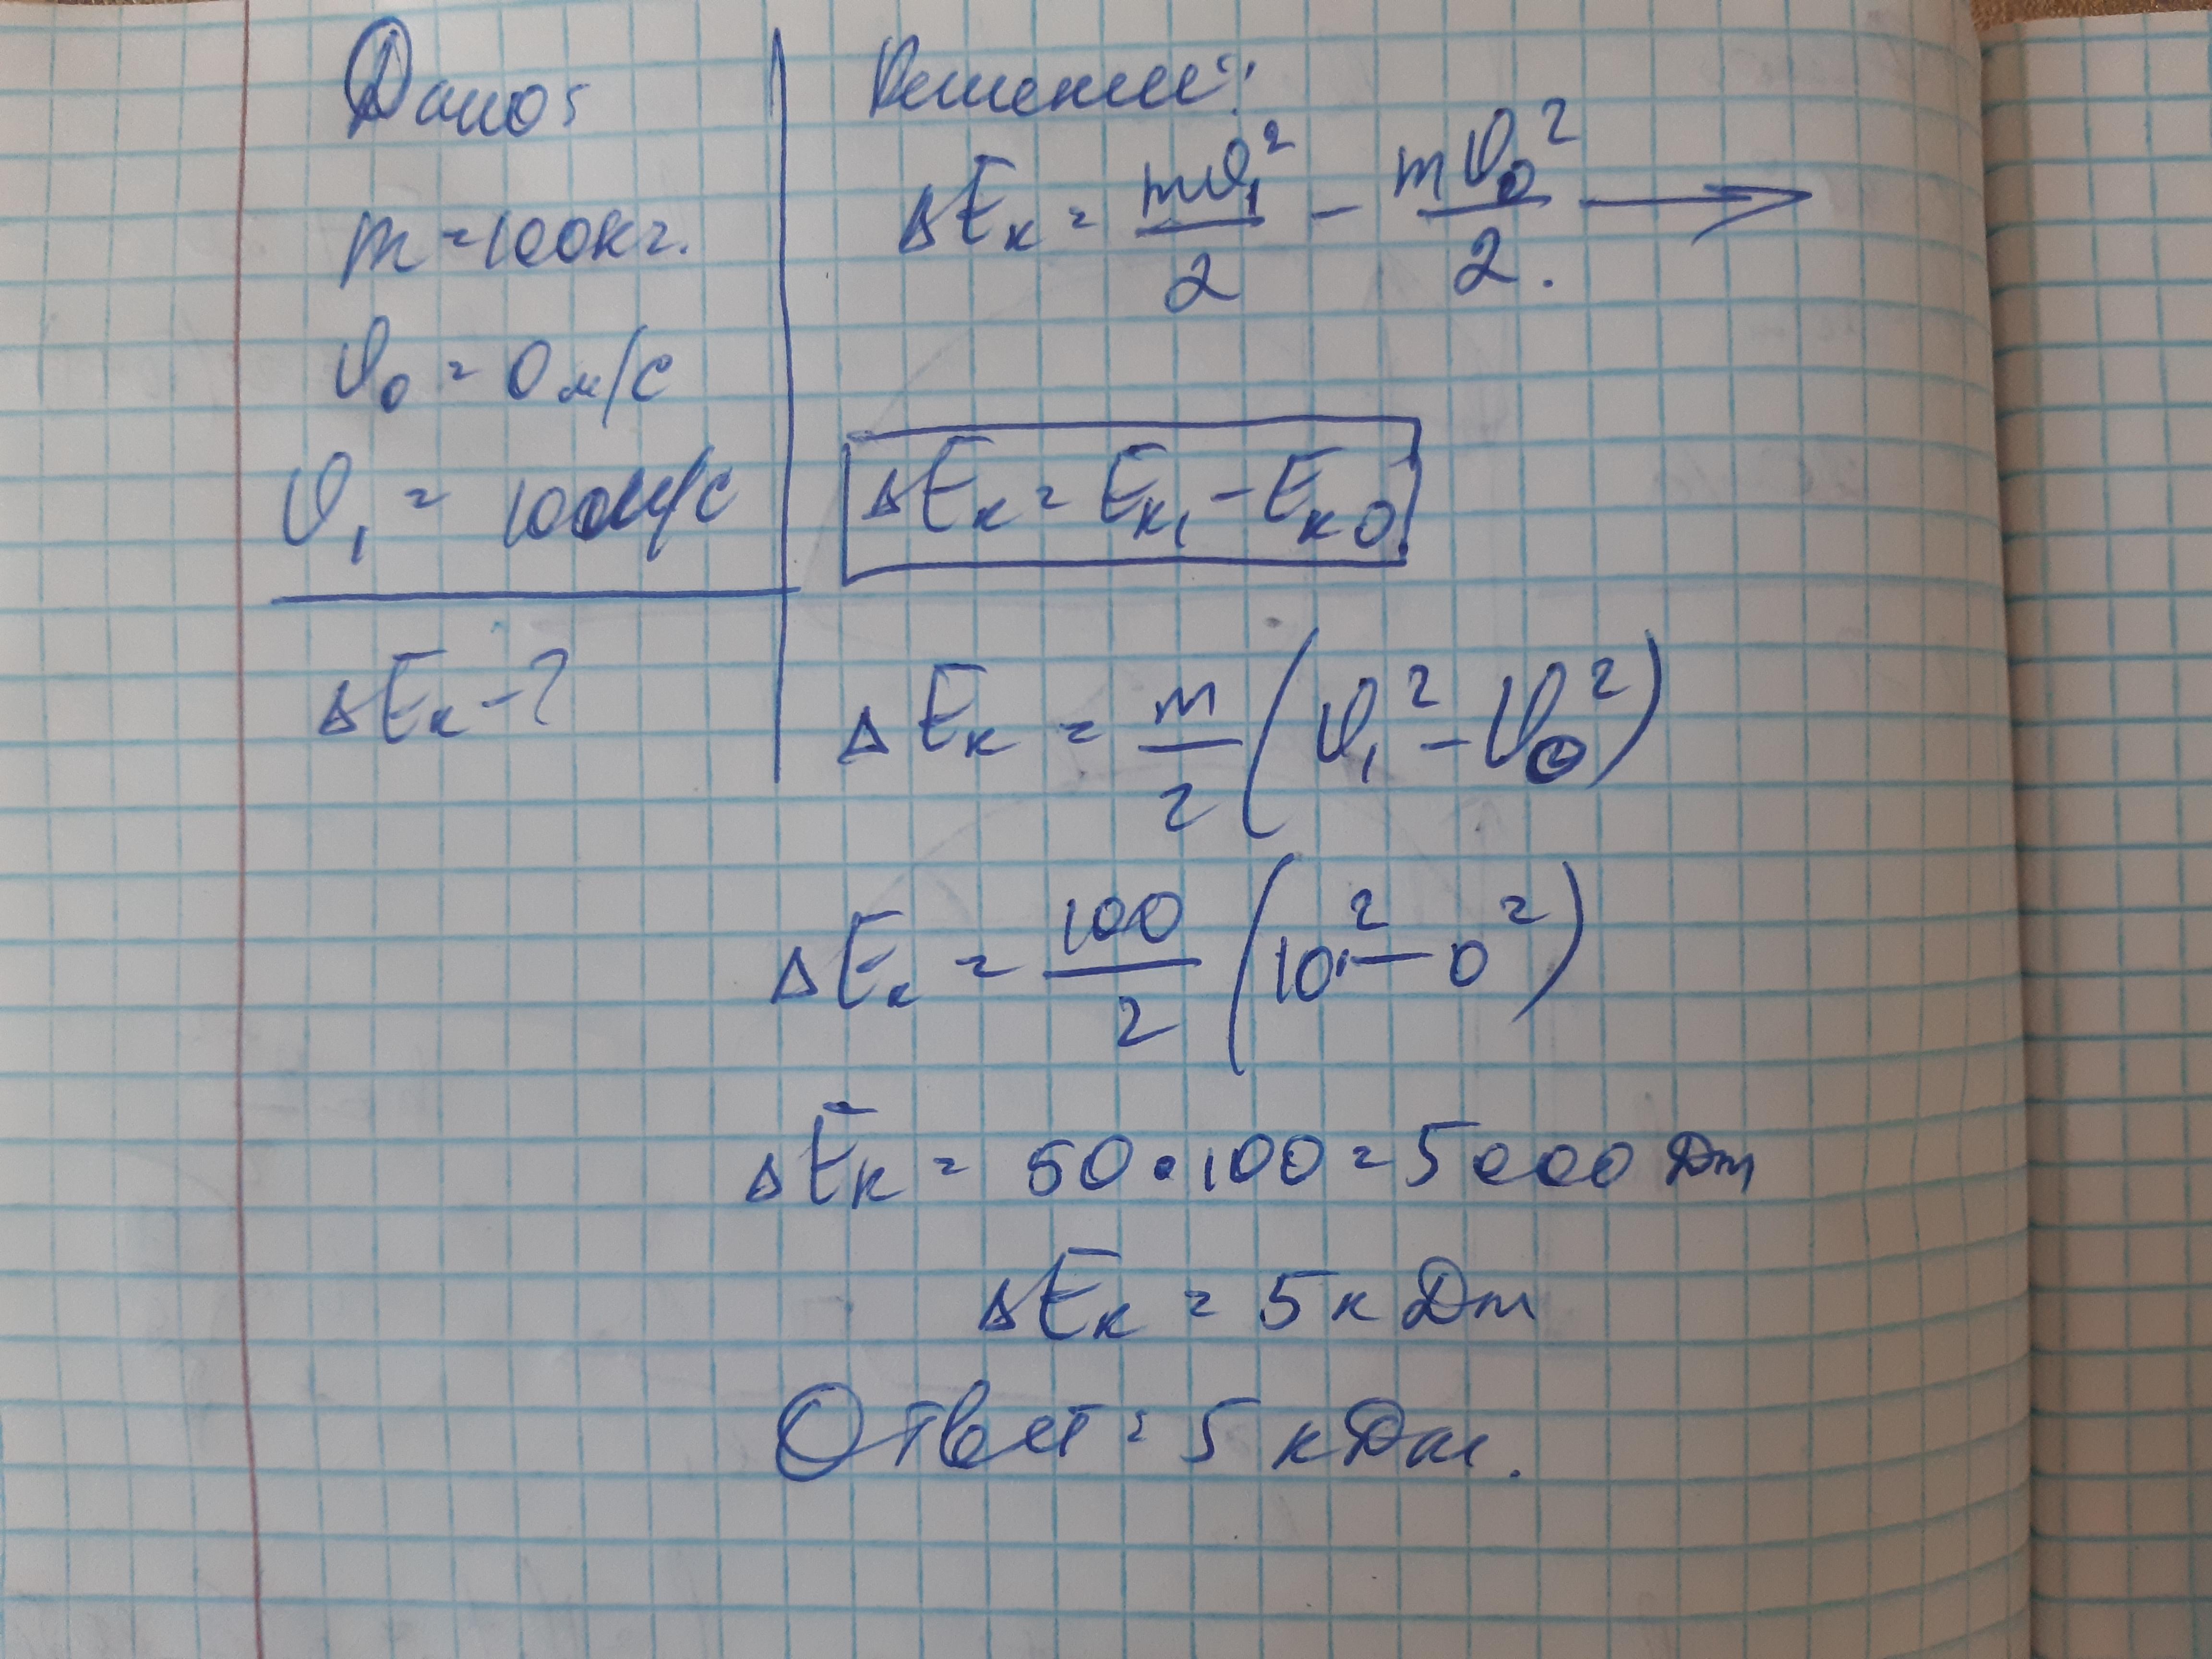 Дано:
m = 100кг.
υ₀ = 0 м/с
υ₁ = 100м/с
ΔEк - ?
Решение:
ΔEк = mυ₁²/2 - mυ₀²/2. →
ΔEк = Eк₁ - Eк0.
ΔEк = m/2 (υ₁² - υ₀²)
ΔEк = 100/2 (10² - 0²)
ΔEк = 50 • 100 = 5000 Дж
ΔEк = 5 кДж
Ответ: 5 кДж.